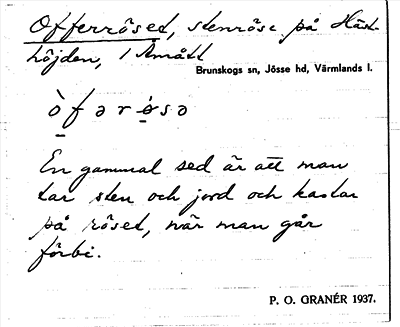 Offerröset, stenröse på Häst-
höjden, i Åmått
Brunskogs sn, Jösse hd, Värmlands l.
ò f ə r ö̀ s ə
En gammal sed är att man
tar sten och jord och kastar
på röset, när man går
förbi.
P. O. GRANÉR 1937.